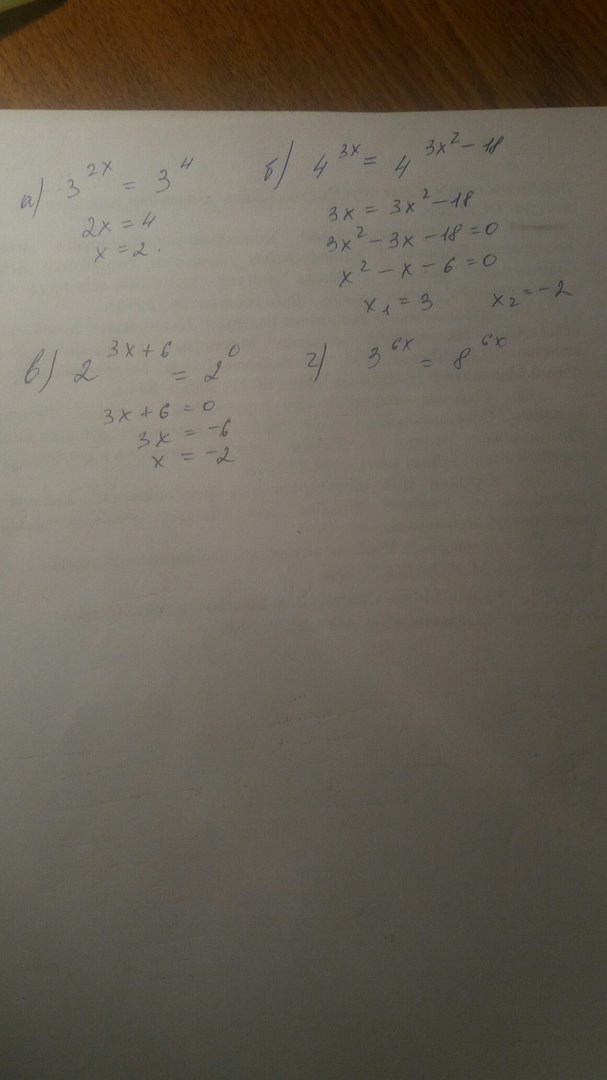 а) 3^{2x} = 3^4
2x = 4
x = 2.
б) 4^{3x} = 4^{3x^2 - 18}
3x = 3x^2 - 18
3x^2 - 3x - 18 = 0
x^2 - x - 6 = 0
x_1 = 3 x_2 = -2
в) 2^{3x+6} = 2^0
3x + 6 = 0
3x = -6
x = -2
г) 3^{6x} = 8^{6x}